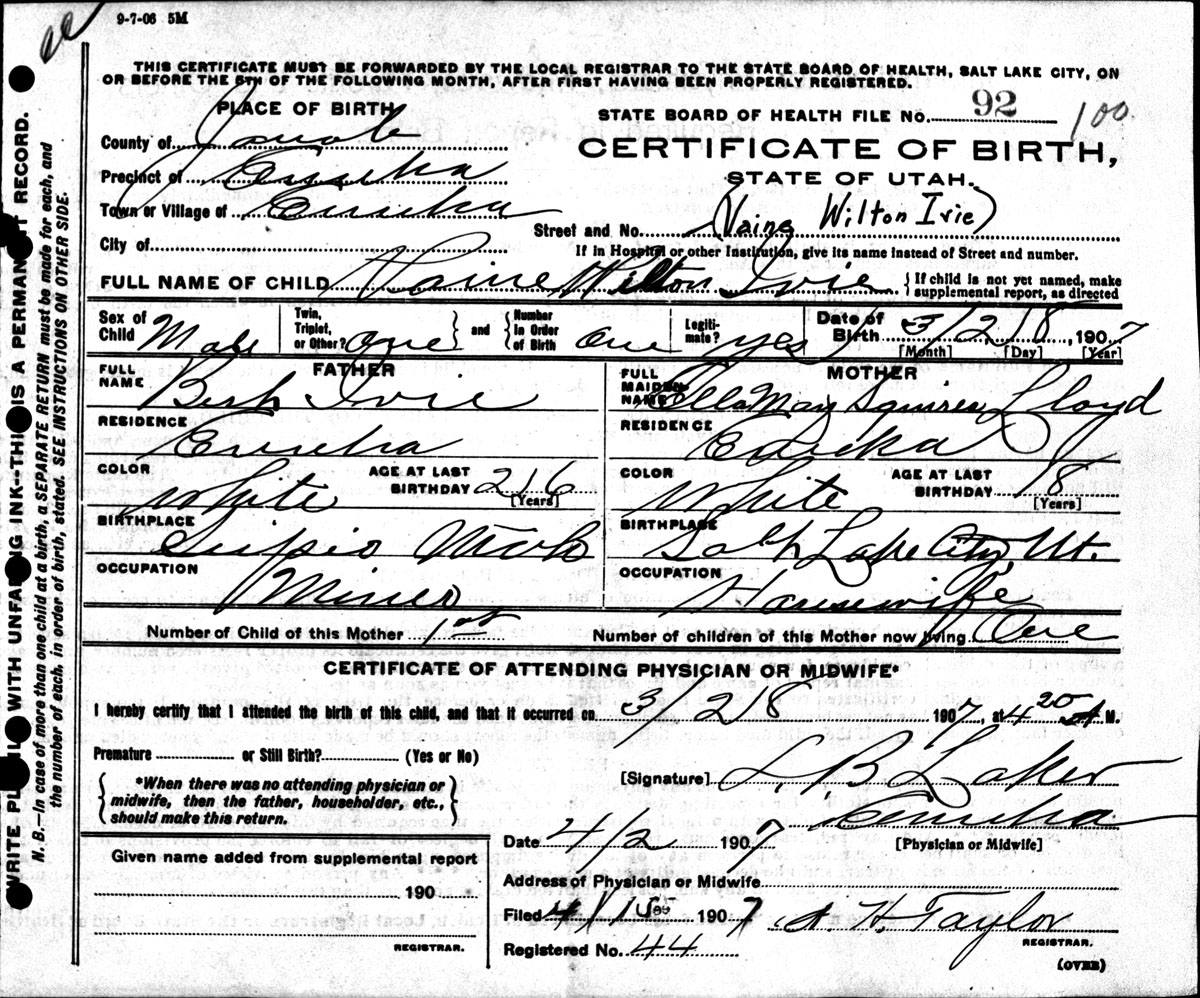 9-7-06 5M
THIS CERTIFICATE MUST BE FORWARDED BY THE LOCAL REGISTRAR TO THE STATE BOARD OF HEALTH, SALT LAKE CITY, ON
OR BEFORE THE 5TH OF THE FOLLOWING MONTH, AFTER FIRST HAVING BEEN PROPERLY REGISTERED.
PLACE OF BIRTH
STATE BOARD OF HEALTH FILE No. 92 100
County of Juab
CERTIFICATE OF BIRTH,
Precinct of Eureka
STATE OF UTAH.
Town or Village of Eureka
Street and No. (Vaine Wilton Ivie)
City of
If in Hospital or other Institution, give its name instead of Street and number.
FULL NAME OF CHILD Vaine Wilton Ivie { If child is not yet named, make
supplemental report, as directed
Sex of Child Male Twin, Triplet, or Other? One and Number in Order of Birth One Legitimate? yes Date of Birth 3/28, 1907
[Month] [Day] [Year]
FATHER MOTHER
FULL NAME Ivie FULL MAIDEN NAME Ella May Squires Lloyd
RESIDENCE Eureka RESIDENCE Eureka
COLOR White AGE AT LAST BIRTHDAY 26 [Years] COLOR White AGE AT LAST BIRTHDAY 18 [Years]
BIRTHPLACE Scipio Utah BIRTHPLACE Salt Lake City, Ut.
OCCUPATION Miner OCCUPATION Housewife
Number of Child of this Mother 1st Number of children of this Mother now living One
CERTIFICATE OF ATTENDING PHYSICIAN OR MIDWIFE*
I hereby certify that I attended the birth of this child, and that it occurred on 3/28 1907, at 4 20 A M.
Premature or Still Birth? (Yes or No)
{ *When there was no attending physician or
midwife, then the father, householder, etc.,
should make this return. }
[Signature]
Eureka
[Physician or Midwife]
Date 4/2 1907
Given name added from supplemental report
190
REGISTRAR.
Address of Physician or Midwife
Filed 1907 Taylor
REGISTRAR.
Registered No. 44
(OVER)
WRITE PLAINLY WITH UNFADING INK--THIS IS A PERMANENT RECORD.
N. B.—In case of more than one child at a birth, a SEPARATE RETURN must be made for each, and
the number of each, in order of birth, stated. SEE INSTRUCTIONS ON OTHER SIDE.